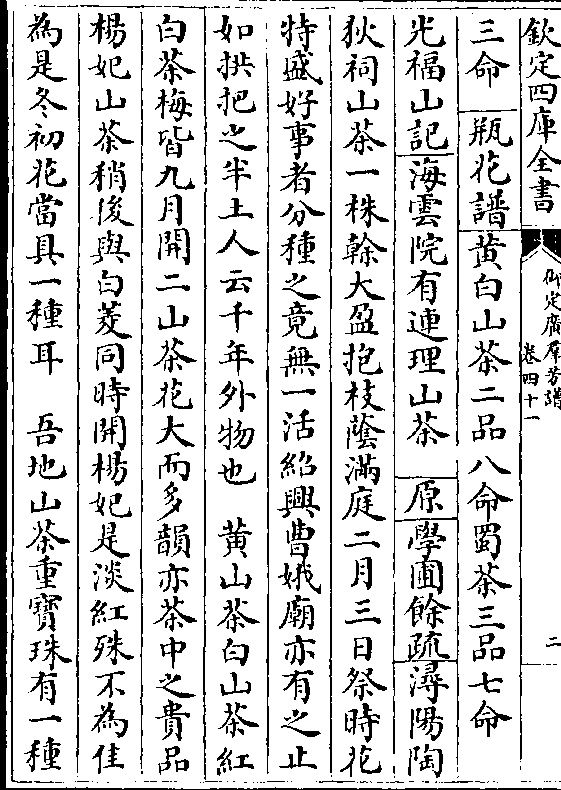 欽定四庫全書
御定廣羣芳譜
卷四十一
二
三命 瓶花譜黄白山茶二品八命蜀茶三品七命
光福山記海雲院有連理山茶 原學圃餘疏潯陽陶
狄祠山茶一株榦大盈抱枝蔭滿庭二月三日祭時花
特盛好事者分種之竟無一活紹興曹娥廟亦有之止
如拱把之半土人云千年外物也 黄山茶白山茶紅
白茶梅皆九月開二山茶花大而多韻亦茶中之貴品
楊妃山茶稍後與白菱同時開楊妃是淡紅殊不為佳
為是冬初花當具一種耳 吾地山茶重寶珠有一種